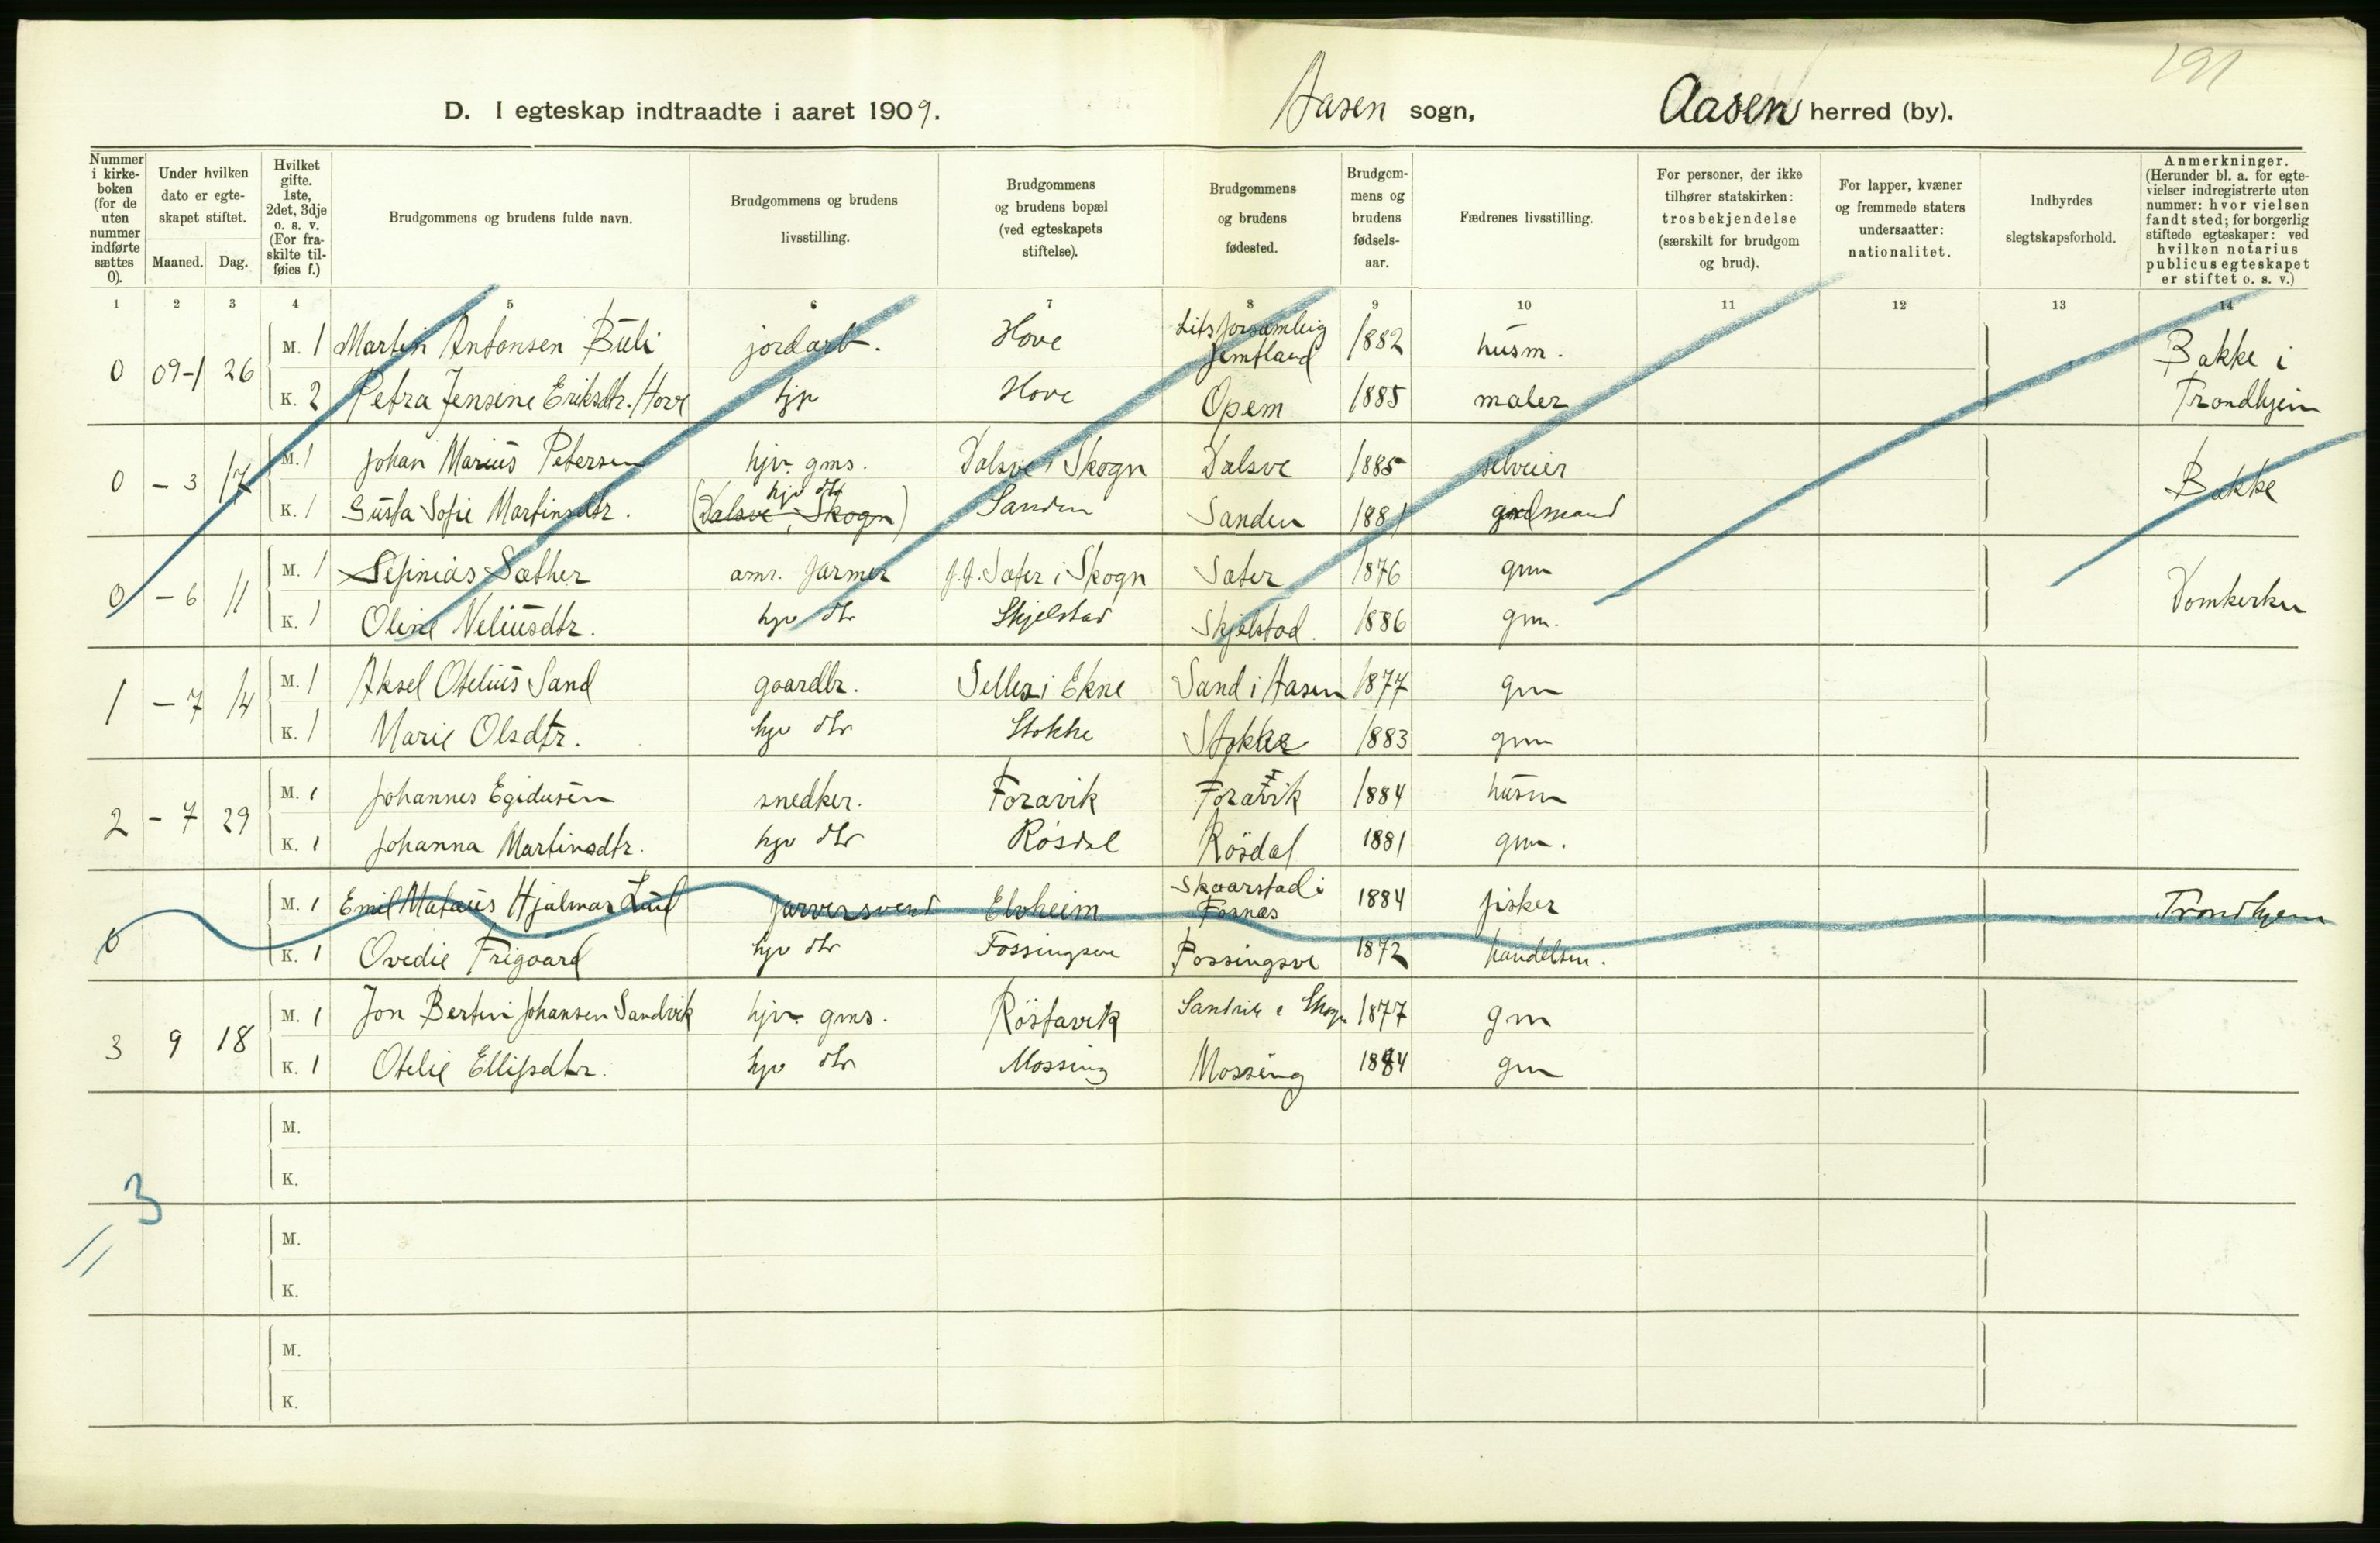 191
D. I egteskap indtraadte i aaret 1909. Aasen sogn, Aasen herred (by).
Nummer i kirke-boken (for de uten nummer indførte sættes 0).
Under hvilken dato er egte-skapet stiftet.
Maaned. Dag.
Hvilket gifte. 1ste, 2det, 3dje o. s. v. (For fra-skilte til-føies f.)
Brudgommens og brudens fulde navn.
Brudgommens og brudens livsstilling.
Brudgommens og brudens bopæl (ved egteskapets stiftelse).
Brudgommens og brudens fødested.
Brudgom-mens og brudens fødsels-aar.
Fædrenes livsstilling.
For personer, der ikke tilhører statskirken: trosbekjendelse (særskilt for brudgom og brud).
For lapper, kvæner og fremmede staters undersaatter: nationalitet.
Indbyrdes slegtskapsforhold.
Anmerkninger. (Herunder bl. a. for egte-vielser indregistrerte uten nummer: hvor vielsen fandt sted; for borgerlig stiftede egteskaper: ved hvilken notarius publicus egteskapet er stiftet o. s. v.)
1 2 3 4 5 6 7 8 9 10 11 12 13 14
0 09-1 26 M. 1 Martin Antonsen Buli jordarb. Hove Jemtland 1882 husm. Bakke i
K. 2 Petra Jensine Eriksdtr. Hove Hove Opem 1885 maler Trondhjem
0 - 3 17 M. 1 Johan Marius Petersen hjv. gms. Dalsve i Skogn Dalsve 1885 selveier Bakke
K. 1 Gusta Sofie Martinsdtr. hjv dtr (Dalsve i Skogn) Sanden Sanden 1881 gaardmand
0 - 6 11 M. 1 Sefinias Sæther amr. farmer Sæter i Skogn Sæter 1876 gm Domkirken
K. 1 Oline Neliusdtr. hjv dtr Skjelstad Skjelstad. 1886 gm.
1 - 7 14 M. 1 Aksel Otelius Sand gaardbr. Selles i Ekne Sand i Aasen 1877 gm
K. 1 Marie Olsdtr. hjv dtr Stokke Stokke 1883 gm
2 - 7 29 M. 1 Johannes Egidusen snedker. Foravik Foravik 1884 husm
K. 1 Johanna Martinsdtr. hjv dtr Rösdal Rösdal 1881 gm.
0 M. 1 Emil Matæus Hjalmar Lund farversvend Elvheim Skaarstad i Fosnæs 1884 fisker Trondhjem
K. 1 Ovedie Frigaard hjv dtr Fossingsve Fossingsve 1872 handelsm.
3 9 18 M. 1 Jon Bertin Johansen Sandvik hjv. gms. Röstavik Sandvik i Skogn 1877 gm
K. 1 Otelie Ellifsdtr. hjv dtr Mossing Mossing 1884 gm
M.
K.
3
M.
K.
M.
K.